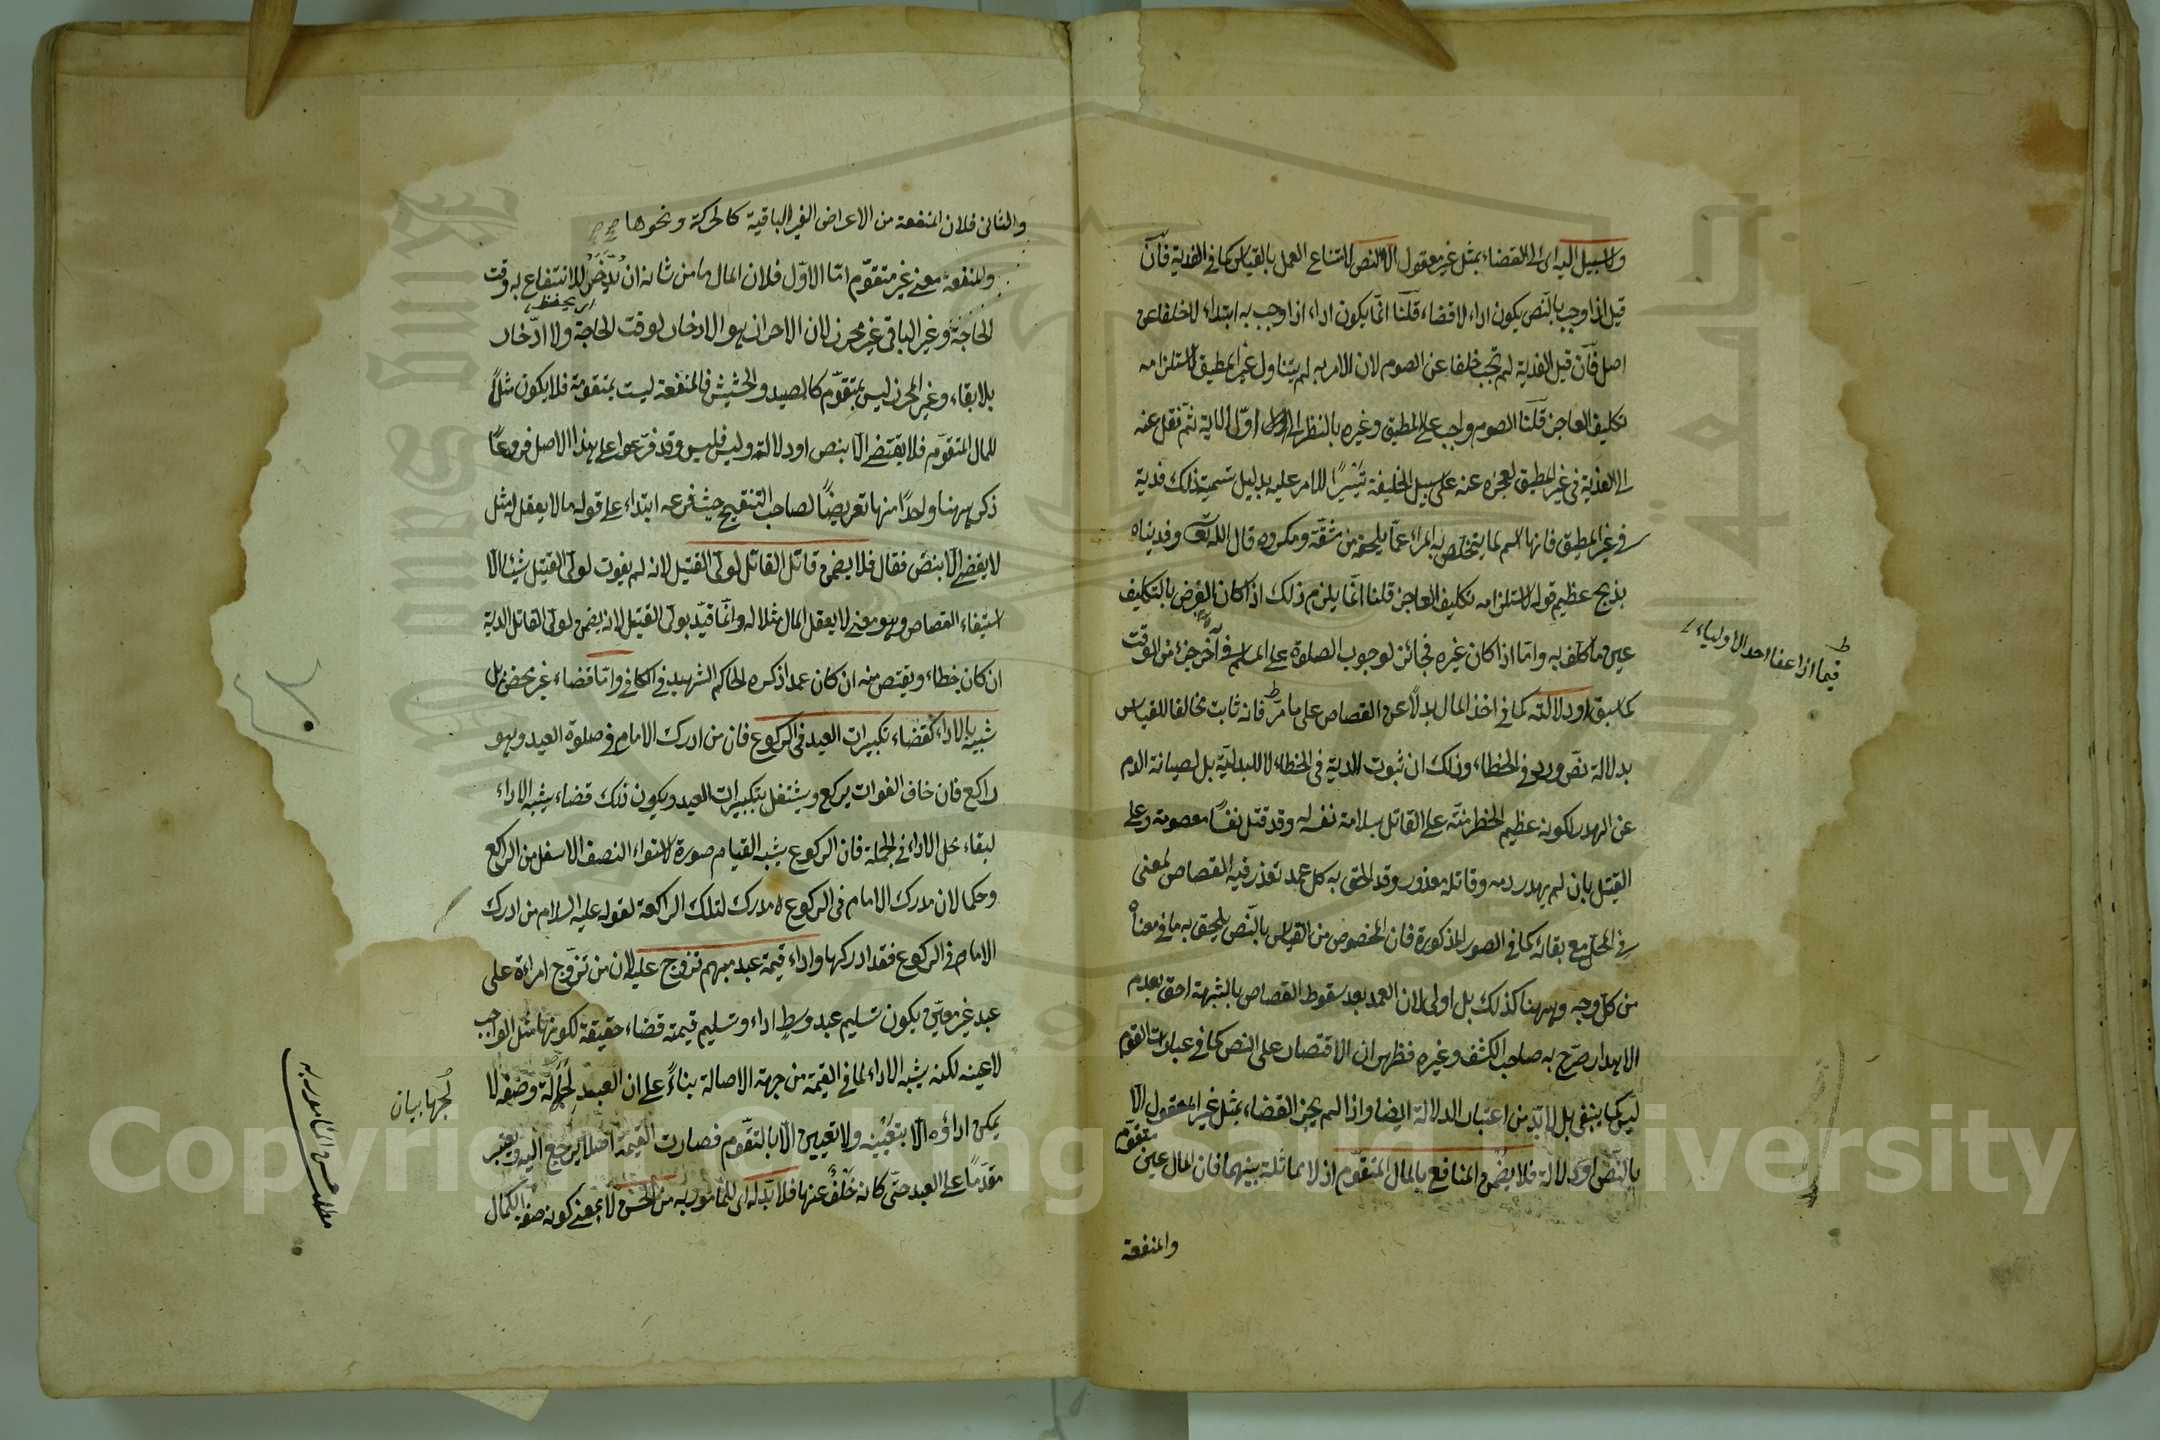 ولا سبيل اليه اى الى القضاء بمثل غير معقول الا النص لامتناع العمل بالقياس كما في الفدية فان
قيل اذا وجب بالنص يكون اداء لا قضاء قلنا انما يكون اداء اذا وجب به ابتداء لا خلفا عن
اصل فان قيل الفدية لم تجب خلفا عن الصوم لان الامر به لم يتناول غير المطيق لاستلزامه
تكليف العاجز قلنا الصوم واجب على المطيق وغيره بالنظر الى اول الاية ثم نقل عنه
الى الفدية في غير المطيق لعجزه عنه على سبيل الخليفة تيسيرا للامر عليه بدليل تسمية ذلك فدية
في غير المطيق فانها اسم لما يتخلص به المراء عما يلحقه من مشقة ومكروه قال الله تعالى وفديناه
بذبح عظيم قوله لاستلزامه تكليف العاجز قلنا انما يلزم ذلك اذا كان الغرض بالتكليف
عين ما كلف به واما اذا كان غيره فجائز لوجوب الصلوة على المسلم في آخر جزء من الوقت
كما سبق او دلالته كما في اخذ المال بدلا عن القصاص على ما مر فانه ثابت مخالفا للقياس
بدلالة نص ورد في الخطاء وذلك ان ثبوت الدية في الخطاء لا للبدلية بل لصيانة الدم
عن الهدر لكونه عظيم الخطر منة على القاتل بسلامة نفسه له وقد قتل نفسا معصومة وعلى
القتيل بان لم يهدر دمه وقاتله معذور وقد الحق به كل عمد تعذر فيه القصاص لمعنى
في المحل مع بقائه كما في الصور المذكورة فان المخصوص من القياس بالنص يلحق به ما في معناه
من كل وجه وههنا كذلك بل اولى لان العمد بعد سقوط القصاص بالشبهة احق بعدم
الاهدار صرح به صاحب الكشف وغيره فظهر ان الاقتصار على النص كما في عبارات القوم
ليس كما ينبغي بل لا بد من اعتبار الدلالة ايضا واذا لم يجز القضاء بمثل غير المعقول الا
بالنص او دلالة فلا يضمن المنافع بالمال المتقوم اذ لا مماثلة بينهما فان المال عين متقوم
والمنفعة
فيما اذا عفا احد الاولياء
والثانى فلان المنفعة من الاعراض الغير الباقية كالحركة ونحوها
والمنفعة معنى غير متقوم اما الاول فلان المال ما من شانه ان يدخر للانتفاع به وقت
اى يحفظ
الحاجة وغير الباقى غير محرز لان الاحراز هو الادخار لوقت الحاجة ولا ادخار
بلا بقاء وغير المحرز ليس بمتقوم كالصيد والحشيش فالمنفعة ليست بمتقومة فلا يكون مثلا
للمال المتقوم فلا يقتضى الا بنص او دلالة وليس فليس وقد فرعوا على هذا الاصل فروعا
ذكر ههنا واحدا منها تعريضا لصاحب التنقيح حيث فرعه ابتداء على قوله ما لا يعقل له مثل
لا يقضى الا بنص فقال فلا يضمن قاتل القاتل لولى القتيل لانه لم يفوت لولى القتيل شيئا الا
استيفاء القصاص وهو معنى لا يعقل المال مثلا له وانما قيد بولى القتيل لانه يضمن لولى القاتل الدية
ان كان خطاء ويقتص منه ان كان عمدا ذكره الحاكم الشهيد في الكافى واما قضاء غير محض بل
شبيه بالاداء كقضاء تكبيرات العيد فى الركوع فان من ادرك الامام في صلوة العيد وهو
راكع فان خاف الفوات يركع ويشتغل بتكبيرات العيد ويكون ذلك قضاء يشبه الاداء
لبقاء محل الاداء في الجملة فان الركوع يشبه القيام صورة لاستواء النصف الاسفل من الراكع
وحكما لان مدرك الامام في الركوع مدرك لتلك الركعة لقوله عليه السلام من ادرك
الامام في الركوع فقد ادركها واداء قيمة عبد مبهم تزوج عليه لان من تزوج امراءة على
عبد غير معين يكون تسليم عبد وسط اداء وتسليم قيمته قضاء حقيقة لكونها مثل الواجب
لا عينه لكنه يشبه الاداء لما في القيمة من جهة الاصالة بناءً على ان العبد لجهالة وصفه لا
يمكن اداؤه الا بتعيينه ولا تعيين الا بالتقوم فصارت القيمة اصلا يرجع اليه ويعتبر
مقدما على العبد حتى كانه خلف عنها فلا بد له اى للمامور به من الحسن لا بمعنى كونه صفة الكمال
لجرها بيان
مطلب حسن المامور به